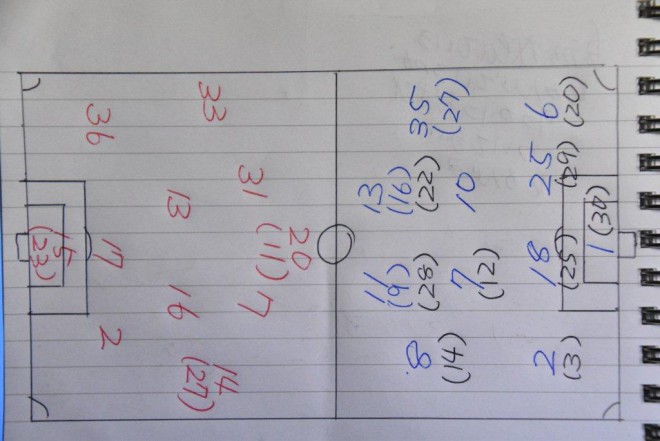 20
(11)
31 7
33 14
(27)
13 16
36 17 2
15
(23)
11 13
(9) (16)
(28) (22)
8 35
(14) (27)
7 10
(12)
2 18 25 6
(3) (25) (29) (20)
1 (30)